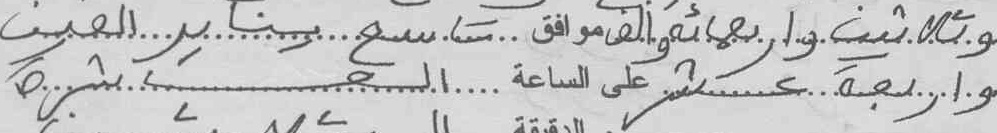 و ثلاثين وأربعمائة وألف موافق تاسع يناير ألفين
وأربعة عشر على الساعة العاشرة
الدقيقة